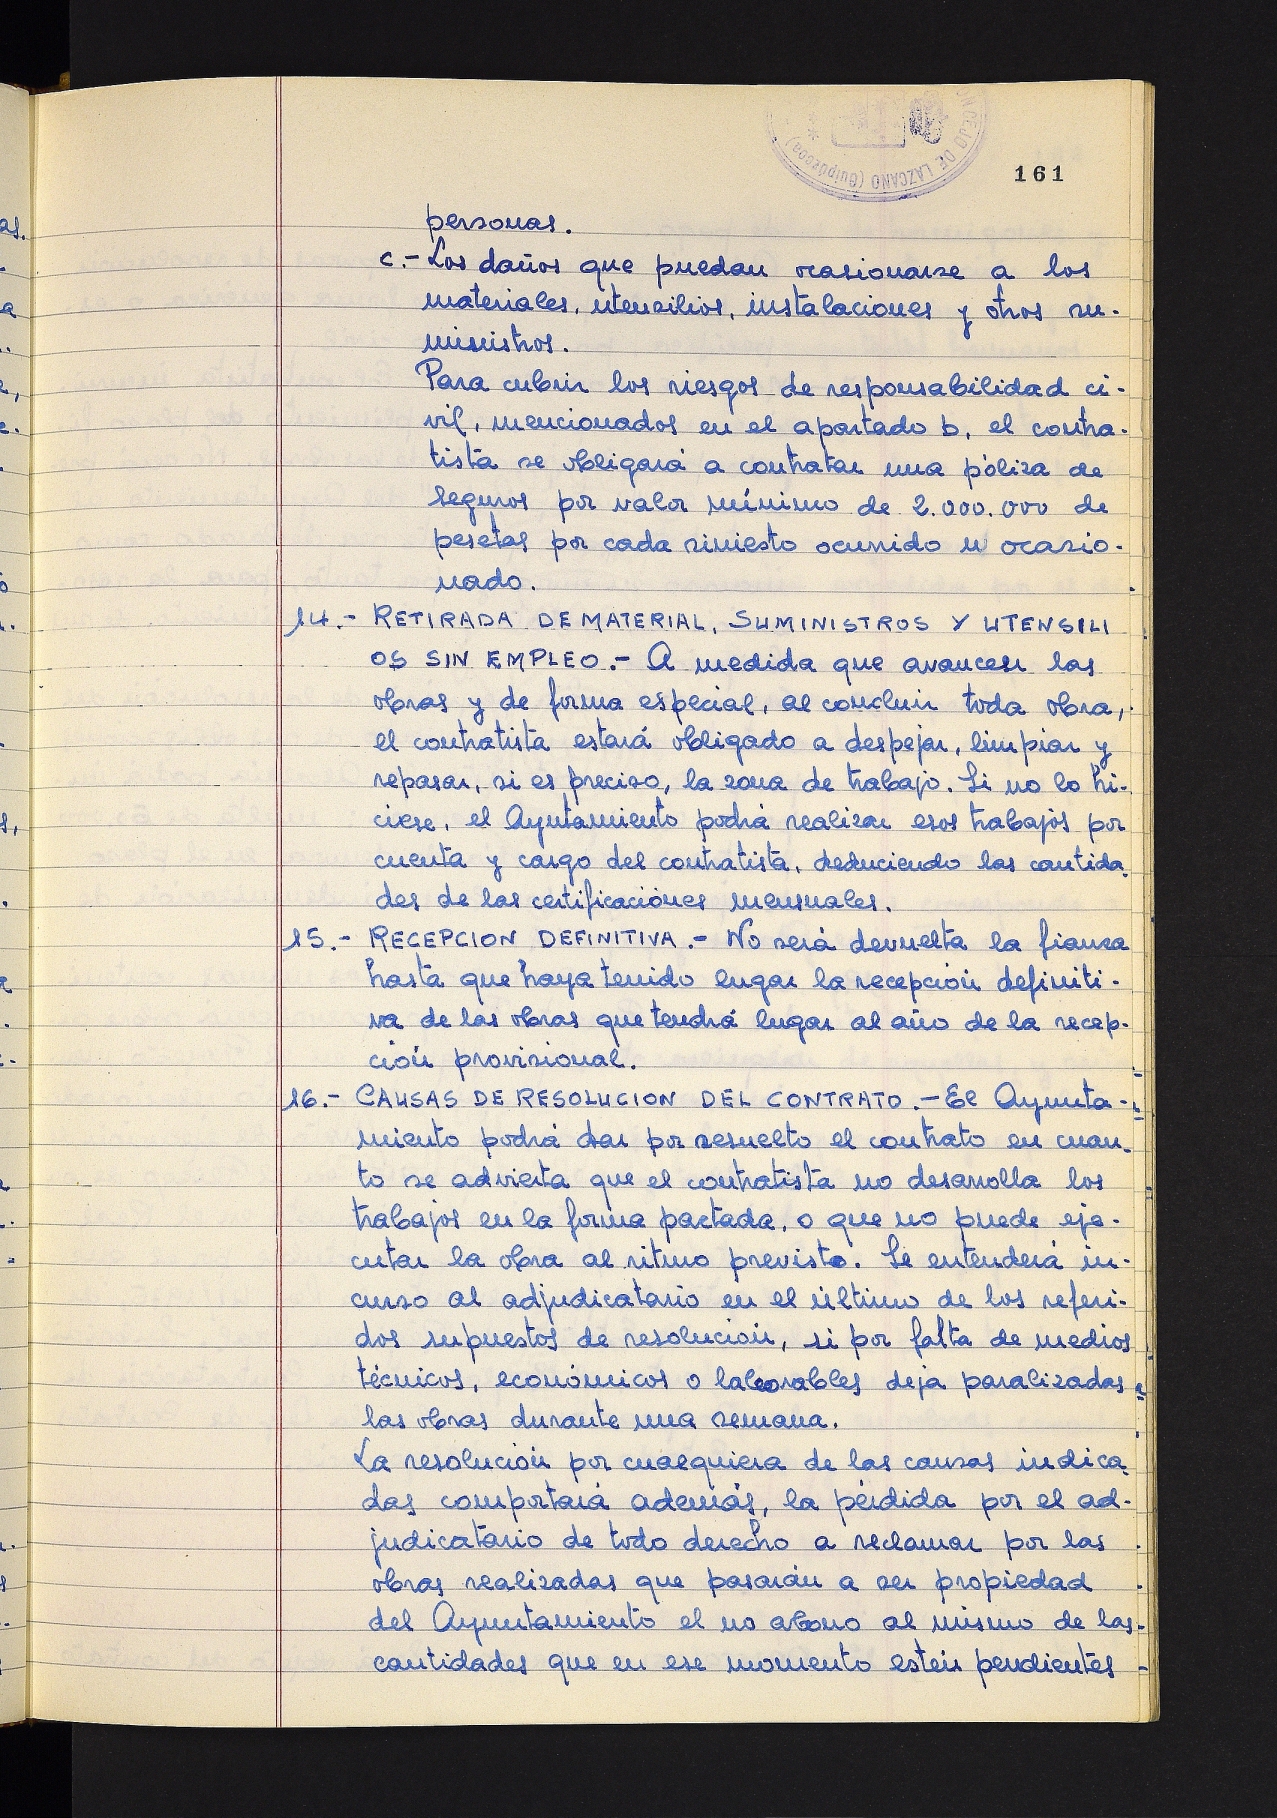 CONCEJO DE LAZCANO (Guipúzcoa)
161
personas.
c.- Los daños que puedan ocasionarse a los
materiales, utensilios, instalaciones y otros su-
ministros.
Para cubrir los riesgos de responsabilidad ci-
vil, mencionados en el apartado b, el contra-
tista se obligará a contratar una póliza de
seguros por valor mínimo de 2.000.000 de
pesetas por cada siniesto ocurrido u ocasio-
nado.
14.- RETIRADA DE MATERIAL, SUMINISTROS Y UTENSILI
OS SIN EMPLEO.- A medida que avancen las
obras y de forma especial, al concluir toda obra,
el contratista estará obligado a despejar, limpiar y
repasar, si es preciso, la zona de trabajo. Si no lo hi-
ciese, el Ayuntamiento podrá realizar esos trabajos por
cuenta y cargo del contratista, deduciendo las cantida-
des de las certificaciones mensuales.
15.- RECEPCION DEFINITIVA.- No será devuelta la fianza
hasta que haya tenido lugar la recepción definiti-
va de las obras que tendrá lugar al año de la recep-
ción provisional.
16.- CAUSAS DE RESOLUCION DEL CONTRATO.- El Ayunta-
miento podrá dar por resuelto el contrato en cuan-
to se advierta que el contratista no desarrolla los
trabajos en la forma pactada, o que no puede eje-
cutar la obra al ritmo previsto. Se entenderá in-
curso al adjudicatario en el último de los referi-
dos supuestos de resolución, si por falta de medios
técnicos, económicos o laborables deja paralizadas
las obras durante una semana.
La resolución por cualquiera de las causas indica-
das comportará además, la pérdida por el ad-
judicatario de todo derecho a reclamar por las
obras realizadas que pasarán a ser propiedad
del Ayuntamiento el no abono al mismo de las
cantidades que en ese momento estén pendientes